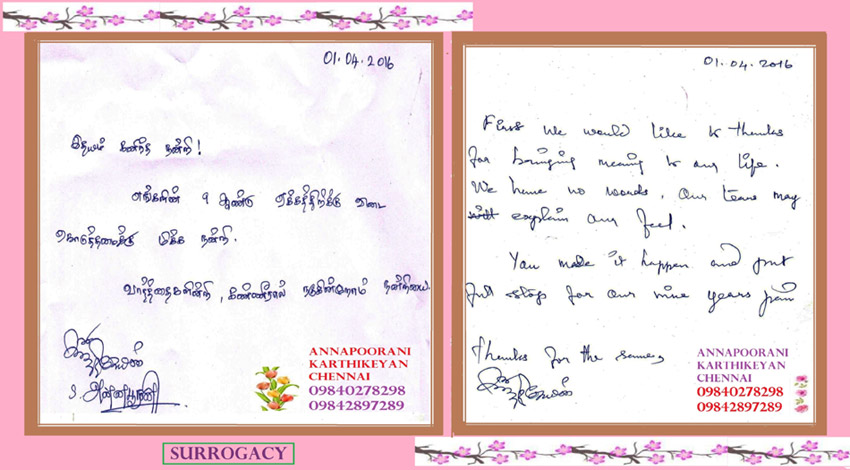 01.04.2016
இதயம் கனிந்த நன்றி!
எங்களின் 9 ஆண்டு ஏக்கத்திற்க்கு விடை
கொடுத்தமைக்கு மிக்க நன்றி.
வார்த்தைகளின்றி, கண்ணீரால் நனைகின்றோம் நன்றியை
S. அன்னபூரணி
ANNAPOORANI
KARTHIKEYAN
CHENNAI
09840278298
09842897289
01.04.2016
First we would like to thanks
for bringing meaning to our life.
We have no words. Our tears may
explain our feel.
You made it happen and put
full stop for our nine years pain
Thanks for the same,
ANNAPOORANI
KARTHIKEYAN
CHENNAI
09840278298
09842897289
SURROGACY